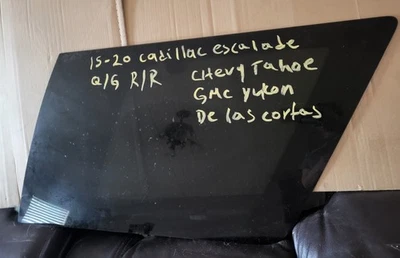 15-20 Cadillac escalade
Q/G R/R Chevy Tahoe
GMC yukon
De las cortas